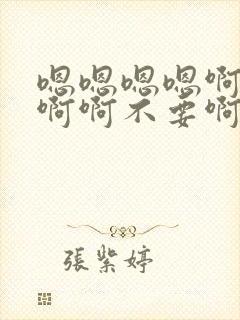 嗯嗯嗯嗯啊
啊啊不要啊
張紫婷